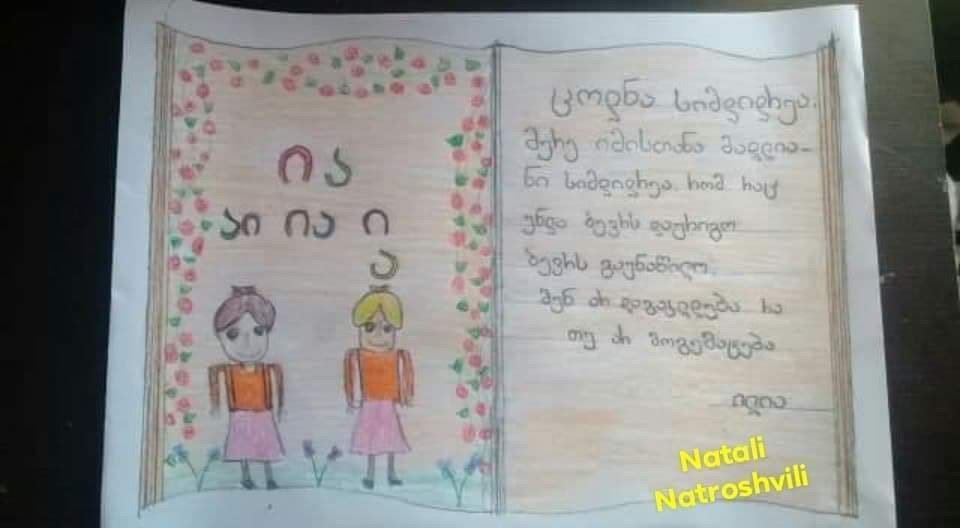 ია
აი ია ი
ა
ცოდნა სიმდიდრეა.
მერე იმისთანა მადლია-
ნი სიმდიდრეა. რომ რაც
უნდა ბევრს დაურიგო
ბევრს გაუნაწილო.
შენ არ დაგაკლდება რა
თუ არ მოგემატება
ილია
Natali
Natroshvili